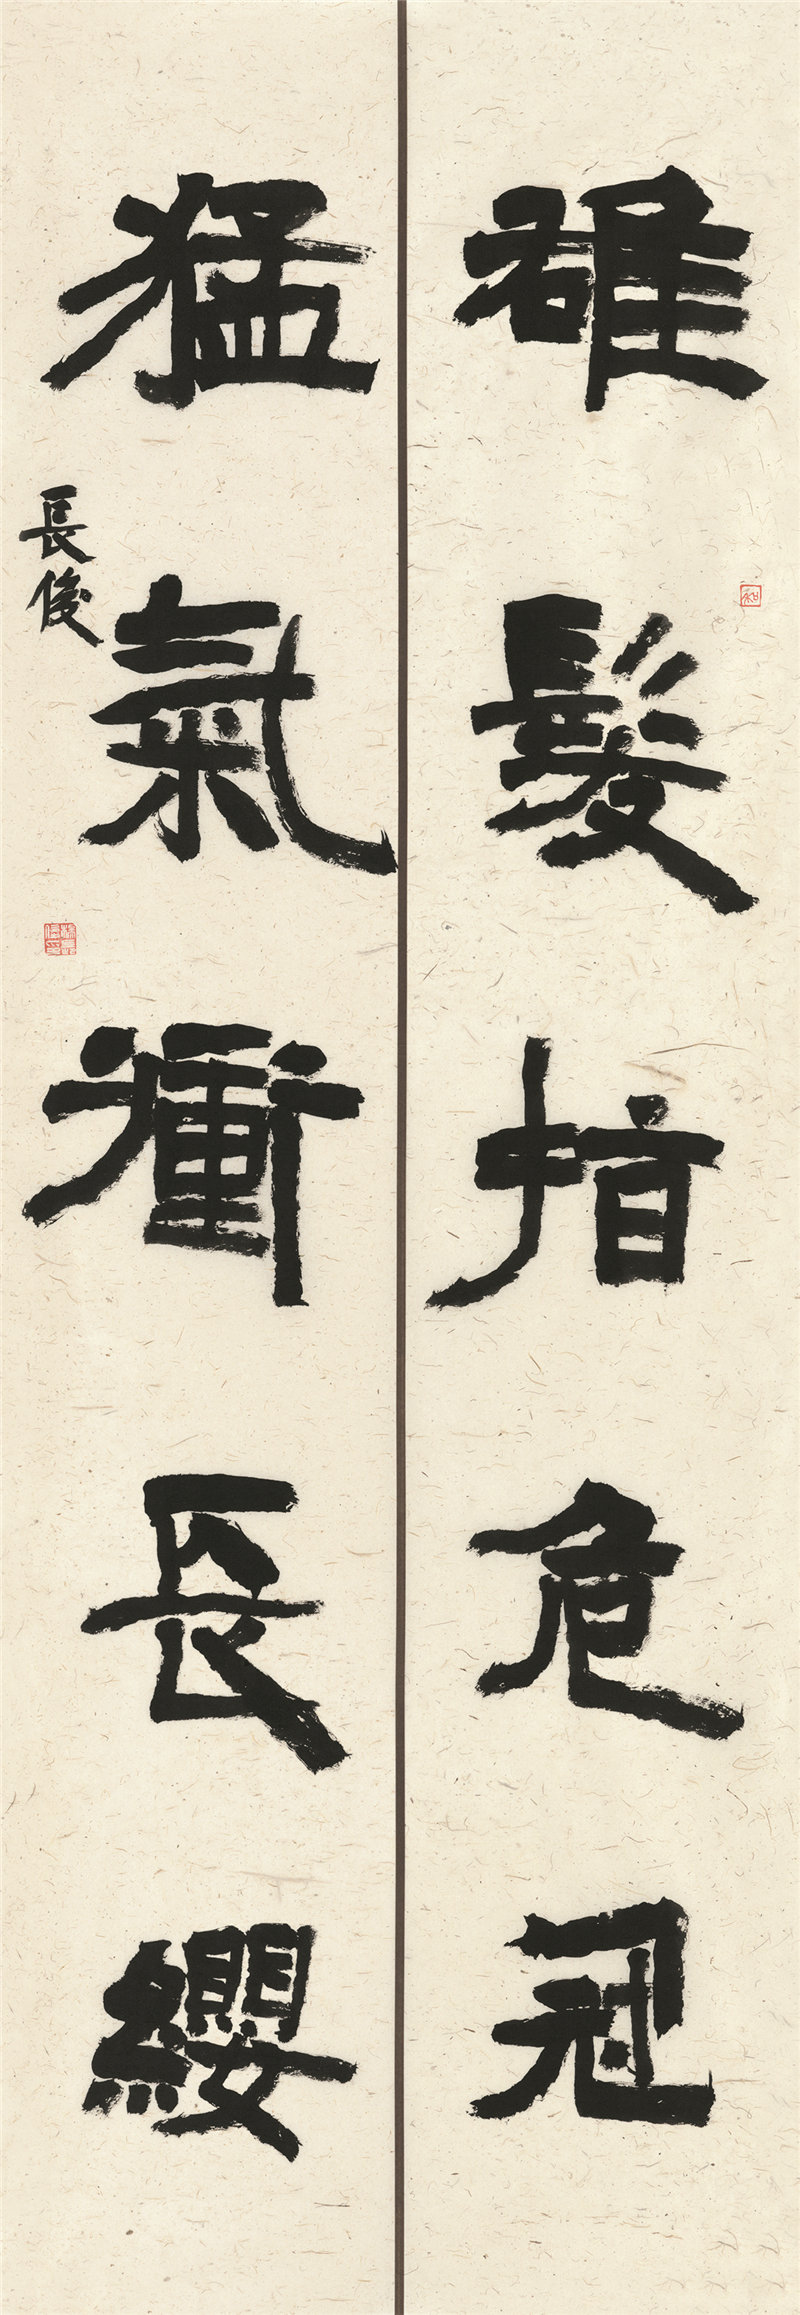 雄髮指危冠
猛氣衝長纓
長俊